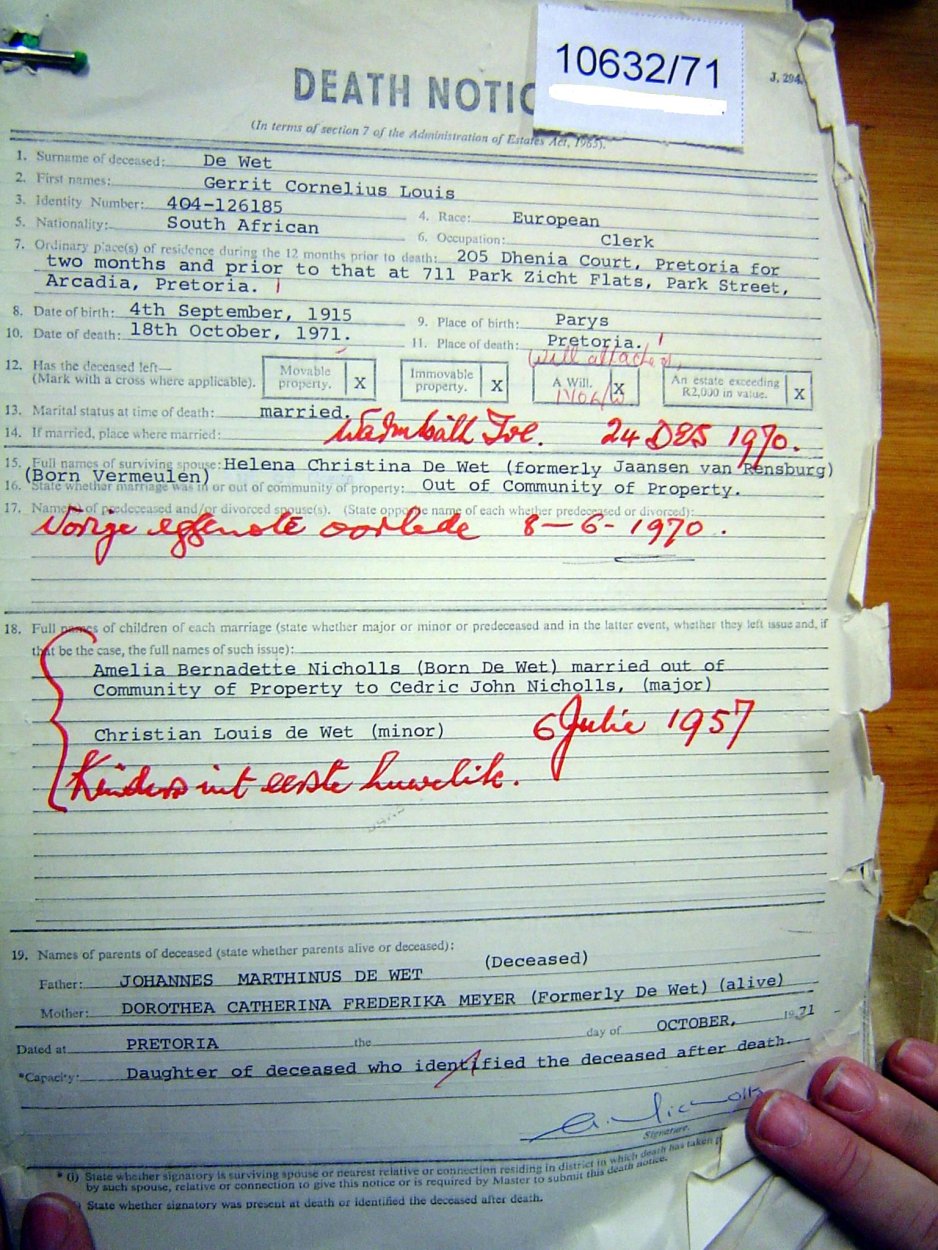 10632/71
J. 294.
DEATH NOTIC
(In terms of section 7 of the Administration of Estates Act, 1965).
1. Surname of deceased: De Wet
2. First names: Gerrit Cornelius Louis
3. Identity Number: 404-126185
4. Race: European
5. Nationality: South African
6. Occupation: Clerk
7. Ordinary place(s) of residence during the 12 months prior to death: 205 Dhenia Court, Pretoria for
two months and prior to that at 711 Park Zicht Flats, Park Street,
Arcadia, Pretoria.
8. Date of birth: 4th September, 1915
9. Place of birth: Parys
10. Date of death: 18th October, 1971.
11. Place of death: Pretoria.
Will attached
12. Has the deceased left—
(Mark with a cross where applicable).
Movable property. X
Immovable property. X
A Will. X
An estate exceeding R2,000 in value. X
13. Marital status at time of death: married.
14. If married, place where married: Warmbath Tvl. 24 DES 1970.
15. Full names of surviving spouse: Helena Christina De Wet (formerly Jaansen van Rensburg)
(Born Vermeulen)
16. State whether marriage was in or out of community of property: Out of Community of Property.
17. Name(s) of predeceased and/or divorced spouse(s). (State opposite name of each whether predeceased or divorced):
Vorige eggenote oorlede 8-6-1970.
18. Full names of children of each marriage (state whether major or minor or predeceased and in the latter event, whether they left issue and, if
that be the case, the full names of such issue):
Amelia Bernadette Nicholls (Born De Wet) married out of
Community of Property to Cedric John Nicholls, (major)
Christian Louis de Wet (minor) 6 Julie 1957
Kinders uit eerste huwelik.
19. Names of parents of deceased (state whether parents alive or deceased):
Father: JOHANNES MARTHINUS DE WET (Deceased)
Mother: DOROTHEA CATHERINA FREDERIKA MEYER (Formerly De Wet) (alive)
Dated at PRETORIA the day of OCTOBER, 1971
*Capacity: Daughter of deceased who identified the deceased after death.
A. Nicholls
Signature.
* (i) State whether signatory is surviving spouse or nearest relative or connection residing in district in which death has taken
by such spouse, relative or connection to give this notice or is required by Master to submit this death notice.
State whether signatory was present at death or identified the deceased after death.